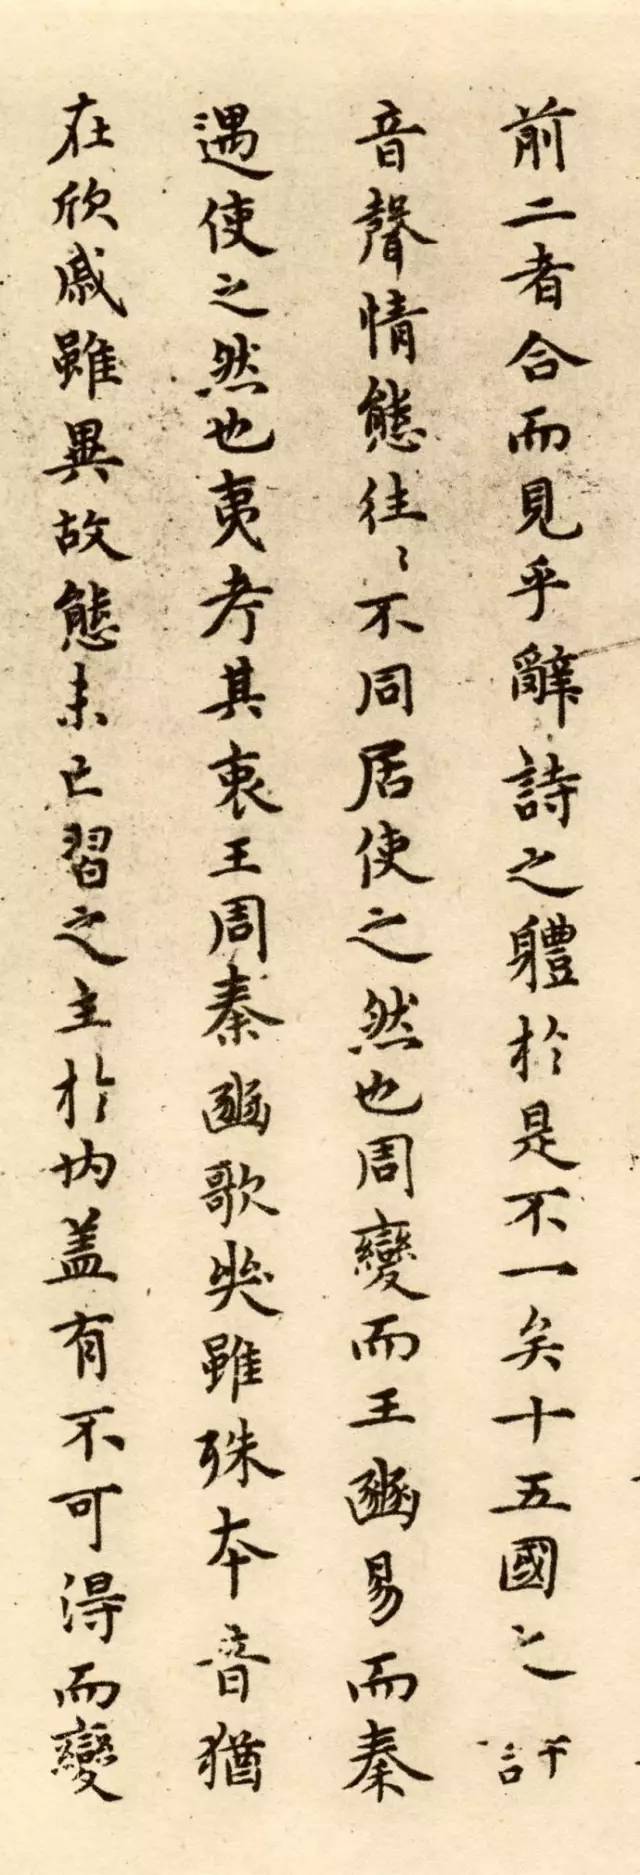 前二者合而見乎辭詩之軆於是不一矣十五國之
音聲情態往〻不同居使之然也周變而王豳易而秦
遇使之然也夷考其衷王周秦豳歌哭雖殊本音猶
在欣戚雖異故態未已習之主於内蓋有不可得而變